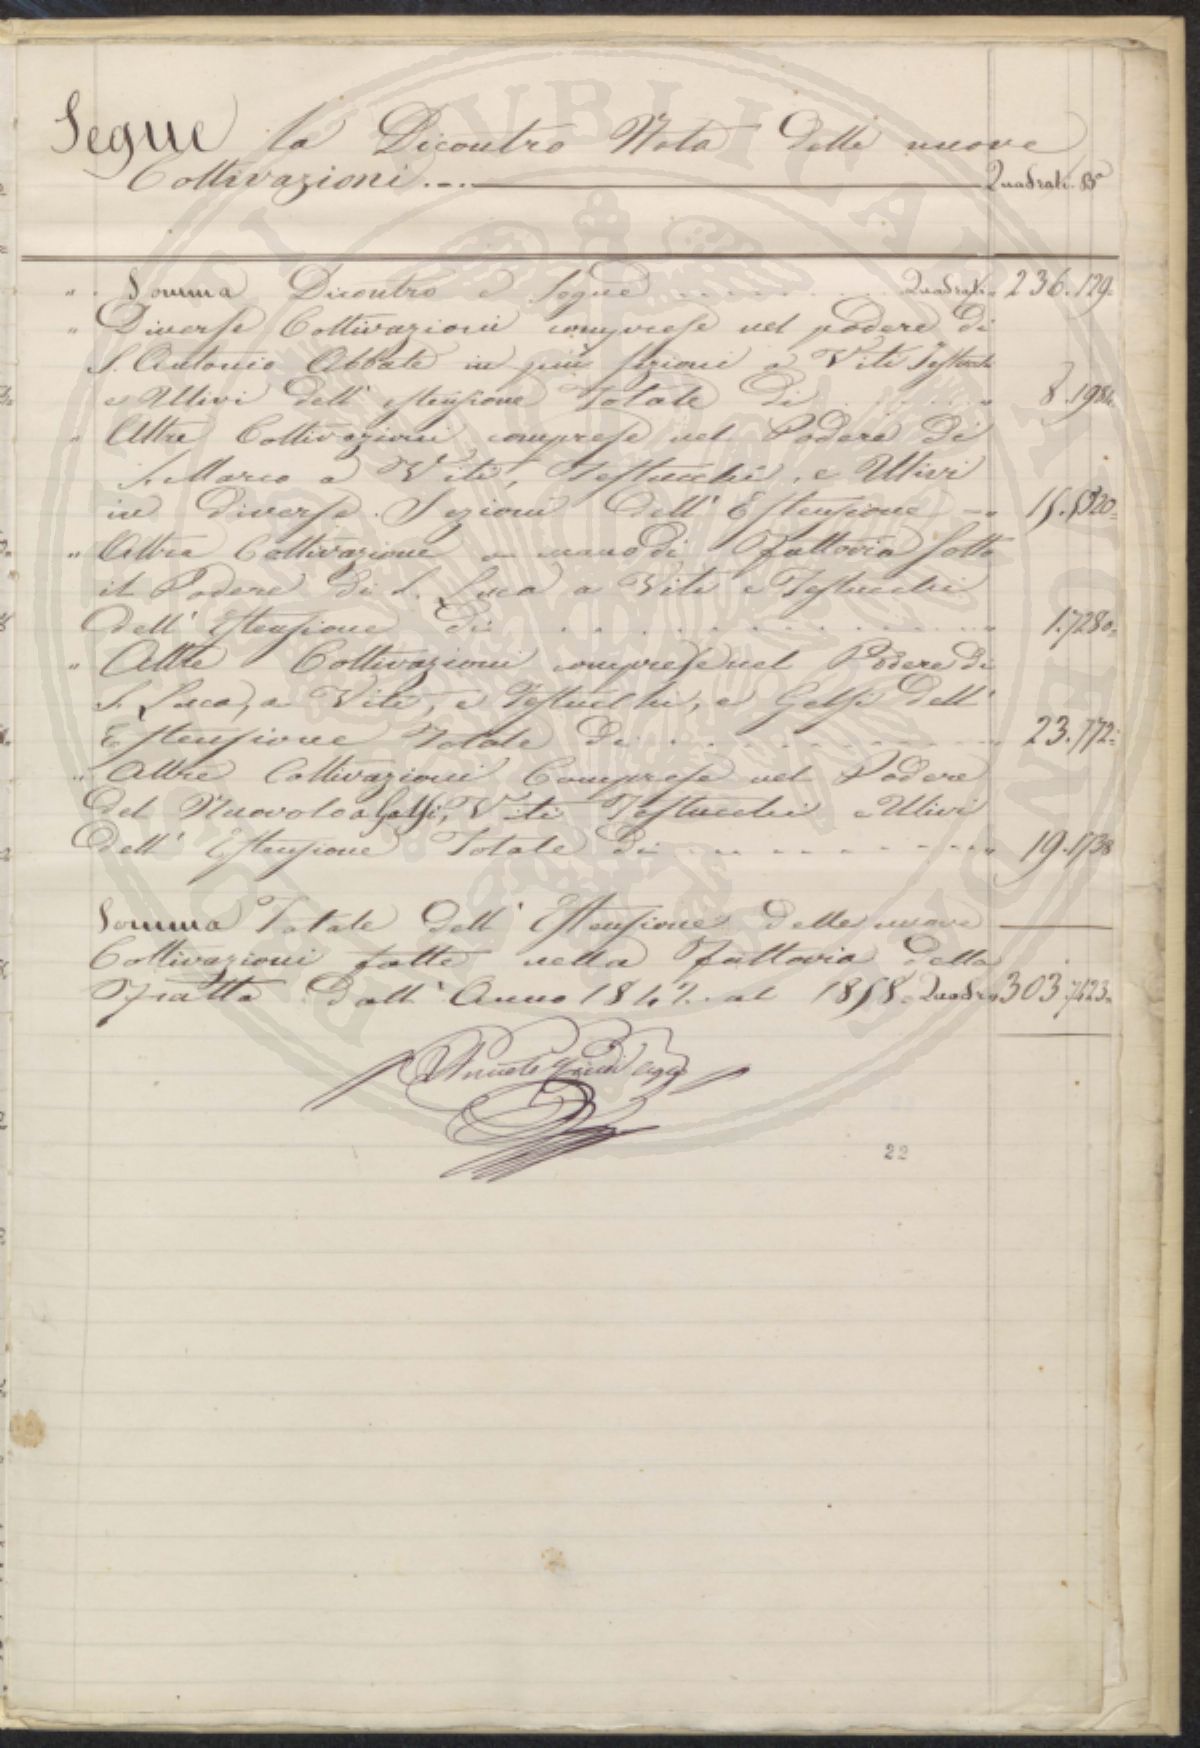 Segue la Dicontro Nota delle nuove
Coltivazioni Quadrati Ba
" Somma Dicontro e Segue Quadrati 236.129
" Diverse Coltivazioni comprese nel podere di
S. Antonio Abbate in più sezioni a Viti Testucchi
e Ulivi dell' estensione Totale di 8.
" Altre Coltivazioni comprese nel Podere di
S. Marco a Viti, Testucchi, e Ulivi
in diverse Sezioni dell' Estensione
" Altra Coltivazione a mano di Fattoria sotto
il Podere di S. Luca a Viti e Testucchi
dell' Estensione di 1.7280
" Altre Coltivazioni comprese nel Podere di
S. Luca, a Viti, e Testucchi, e Gelsi dell'
Estensione Totale di 23.772
" Altre Coltivazioni Comprese nel Podere
del Nuovolo a Gelsi, Viti Testucchi e Ulivi
dell' Estensione Totale di 19.1738
Somma Totale dell' Estensione delle nuove
Coltivazioni fatte nella Fattoria della
Fratta dall' Anno 1842 al 1858 Quadrati 303.7423
22